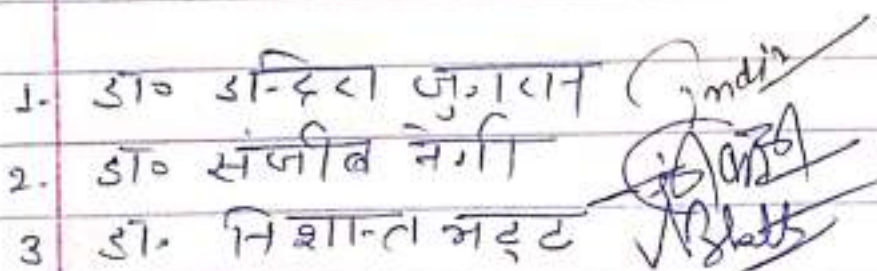 1. डा० इन्दिरा जुगरान Indir
2. डा० संजीब नेगी
3 डा. निशान्त भट्ट NBhatt